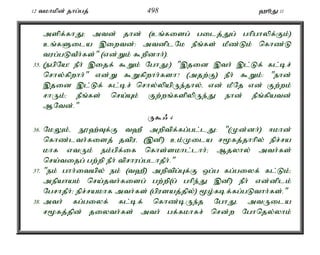 12 வமாமின் தாப்பத் 498 ஹூது 11
அளிக்காது; அவன் தான் (உங்களைப் படைத்துப் பரிபாலிக்கும்)
உங்களுடைய இறைவன்; அவனிடமே நீங்கள் மீண்டும் கொண்டு
வரப்படுவீர்கள்" (என்றும் கூறினார்).
35. (நபியே! நீர் இதைக் கூறும் போது,) "இதனை இவர் இட்டுக் கட்டிச்
சொல்கிறார்" என்று கூறுகிறார்களா? (அதற்கு) நீர் கூறும்: "நான்
இதனை இட்டுக் கட்டிச் சொல்லியிருந்தால், என் மீதே என் குற்றம்
சாரும்; நீங்கள் செய்யும் குற்றங்களிலிருந்து நான் நீங்கியவன்
ஆவேன்."
ருகூஃ 4
36. மேலும், நூஹ்வுக்கு வஹீ அறிவிக்கப்பட்டது: "(முன்னர்) ஈமான்
கொண்டவர்களைத் தவிர, (இனி) உம்முடைய சமூகத்தாரில் நிச்சய
மாக எவரும் நம்பிக்கை கொள்ளமாட்டார்; ஆதலால் அவர்கள்
செய்வதைப் பற்றி நீர் விசாரப்படாதீர்."
37. "நம் பார்வையில் நம் (வஹீ) அறிவிப்புக்கு ஒப்ப கப்பலைக் கட்டும்;
அநியாயம் செய்தவர்களைப் பற்றி(ப் பரிந்து இனி) நீர் என்னிடம்
பேசாதீர்; நிச்சயமாக அவர்கள் (பிரளயத்தில்) மூழ்கடிக்கப்படுவார்கள்."
38. அவர் கப்பலைக் கட்டிக் கொண்டிருந்த போது, அவருடைய
சமூகத்தின் தலைவர்கள் அவர் பக்கமாகச் சென்ற போதெல்லாம்